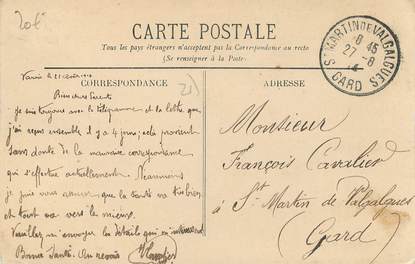 20€
CARTE POSTALE
Tous les pays étrangers n'acceptent pas la Correspondance au recto
(Se renseigner à la Poste)
ST MARTIN DE VALGALGUES
8 45
27 -8
14
GARD
CORRESPONDANCE
ADRESSE
Bien chers
Je suis toujours avec le télégramme et la lettre
que j'ai reçus ensemble il y a 4 jours, cela provient
sans doute de la mauvaise correspondance
qui s'effectue actuellement. Néanmoins
je puis vous assurer que la santé va très bien
et tout va vers le mieux.
Veuillez m'envoyer les détails qui
Bonne Santé. Au revoir
Monsieur
François Cavalier
à St Martin de Valgalgues
(Gard)